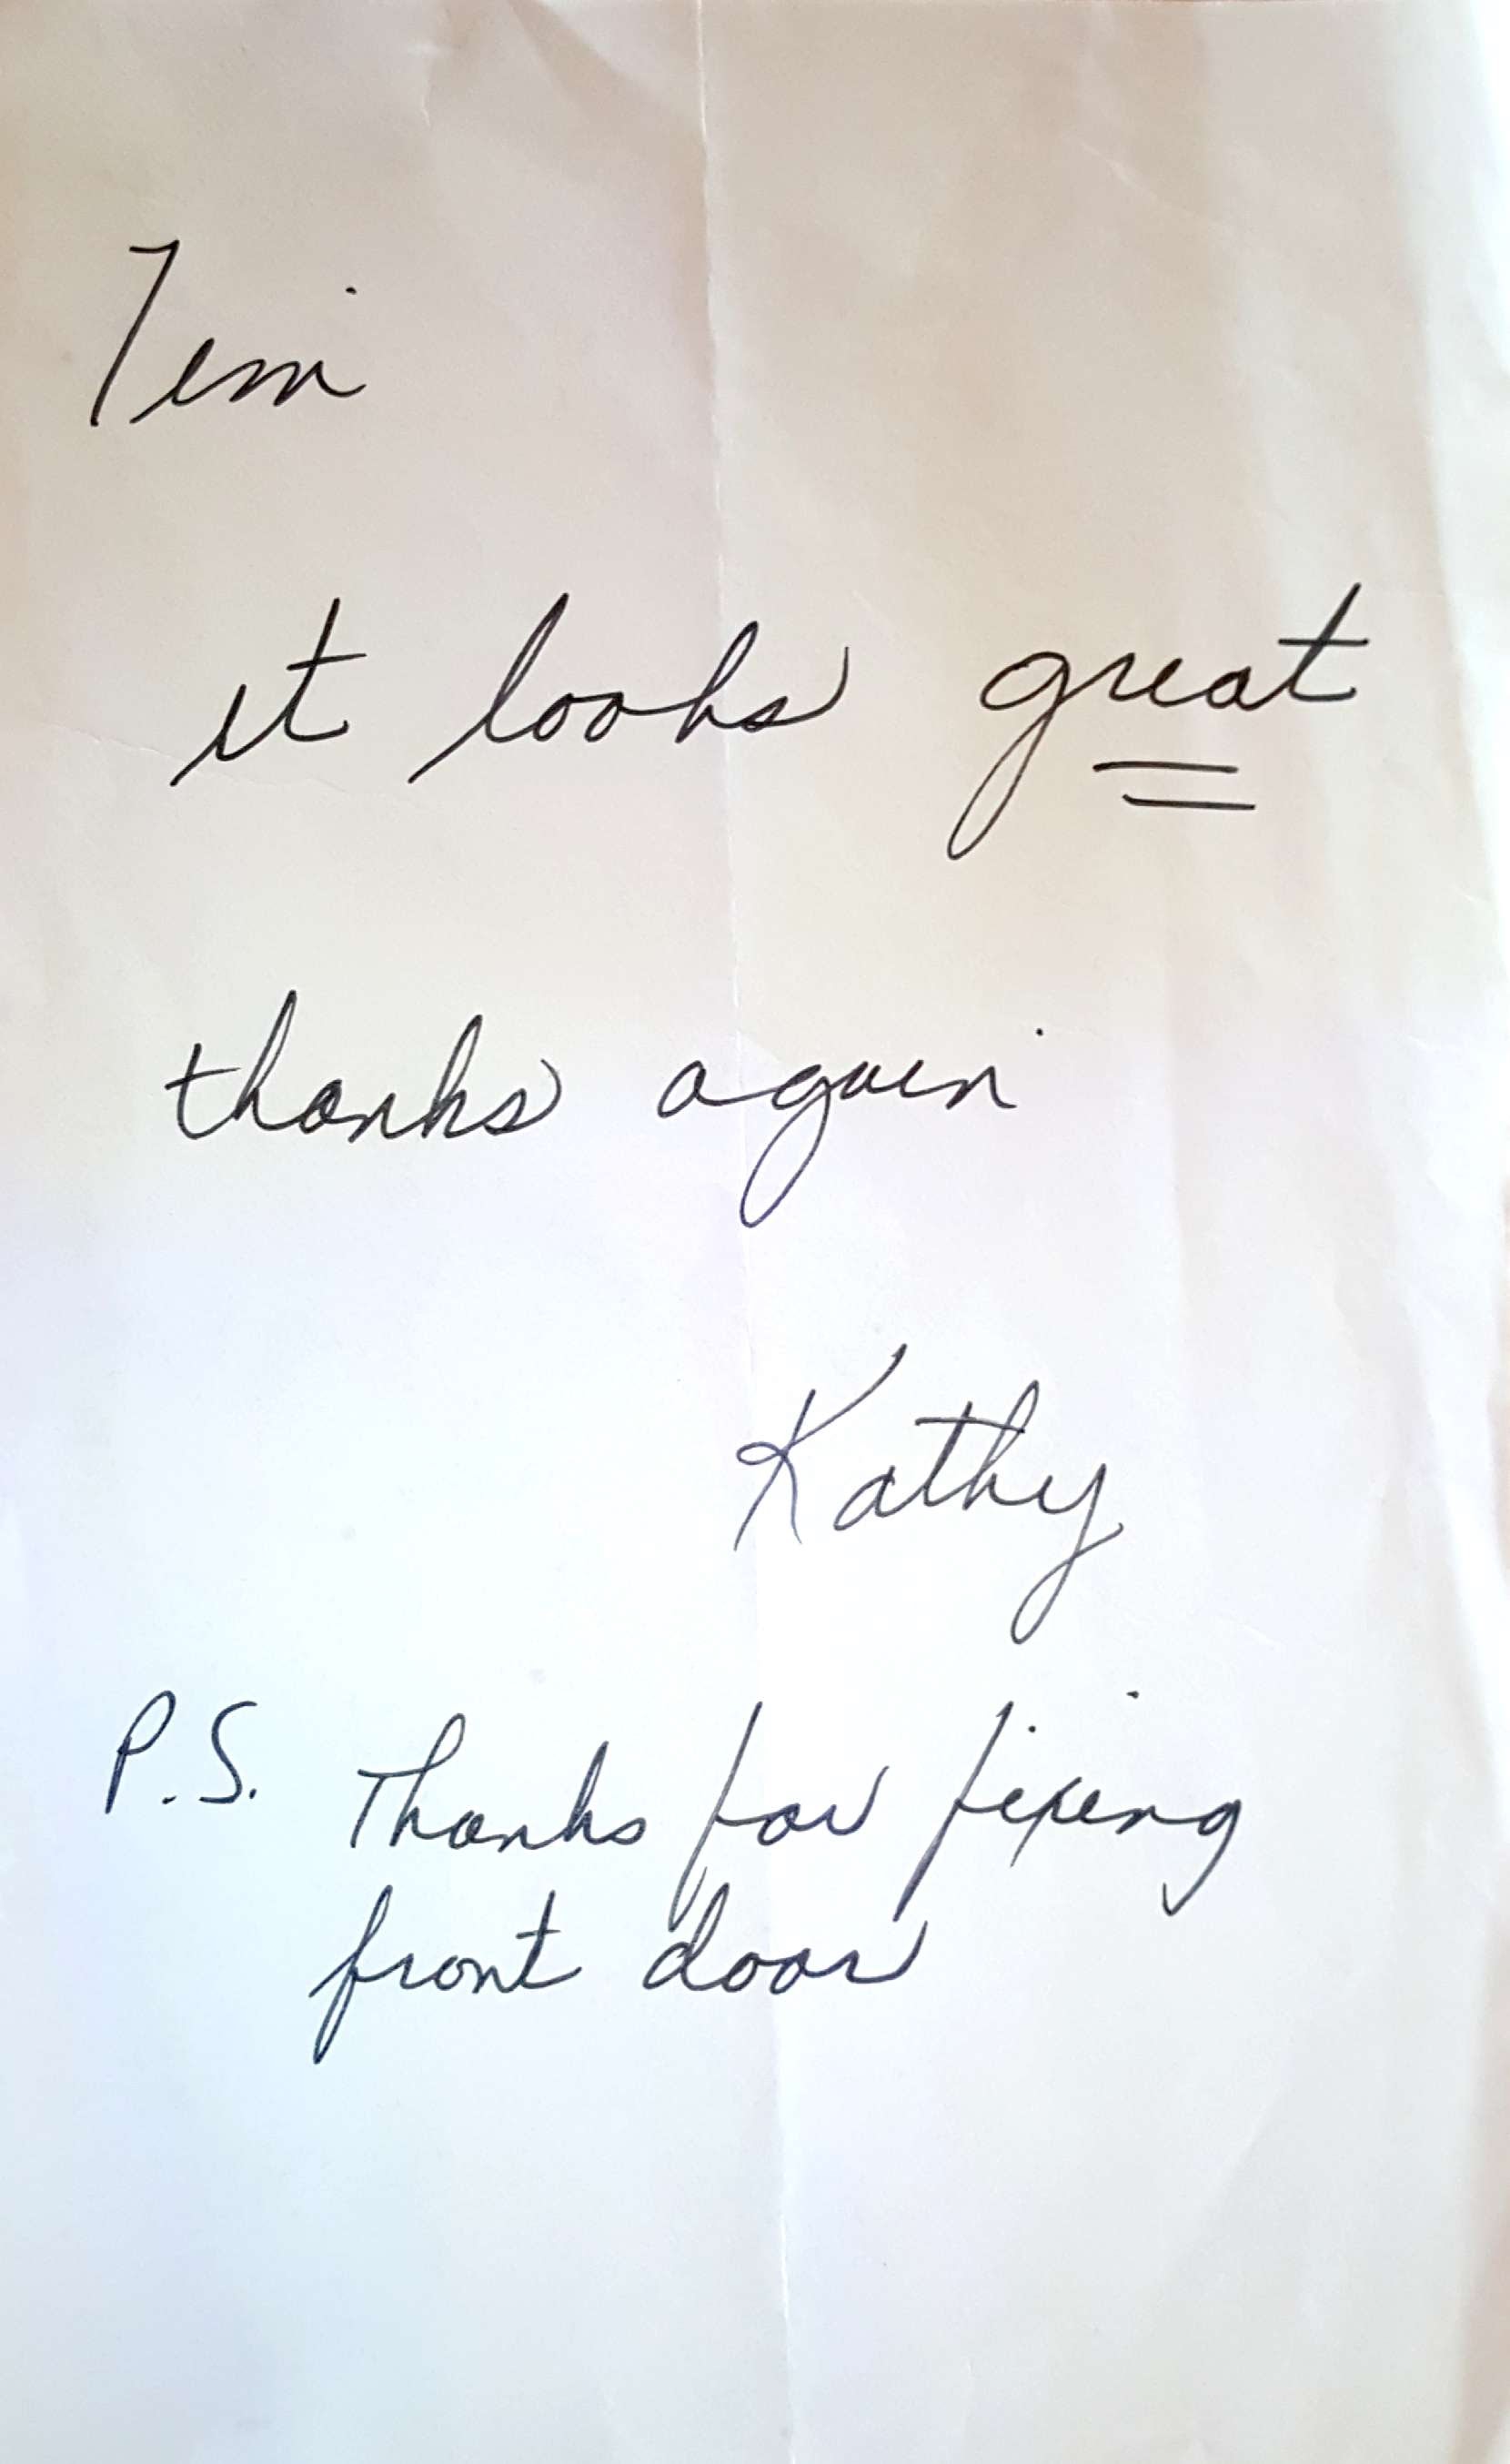 Tim
it looks great
thanks again
Kathy
P.S. Thanks for fixing
front door